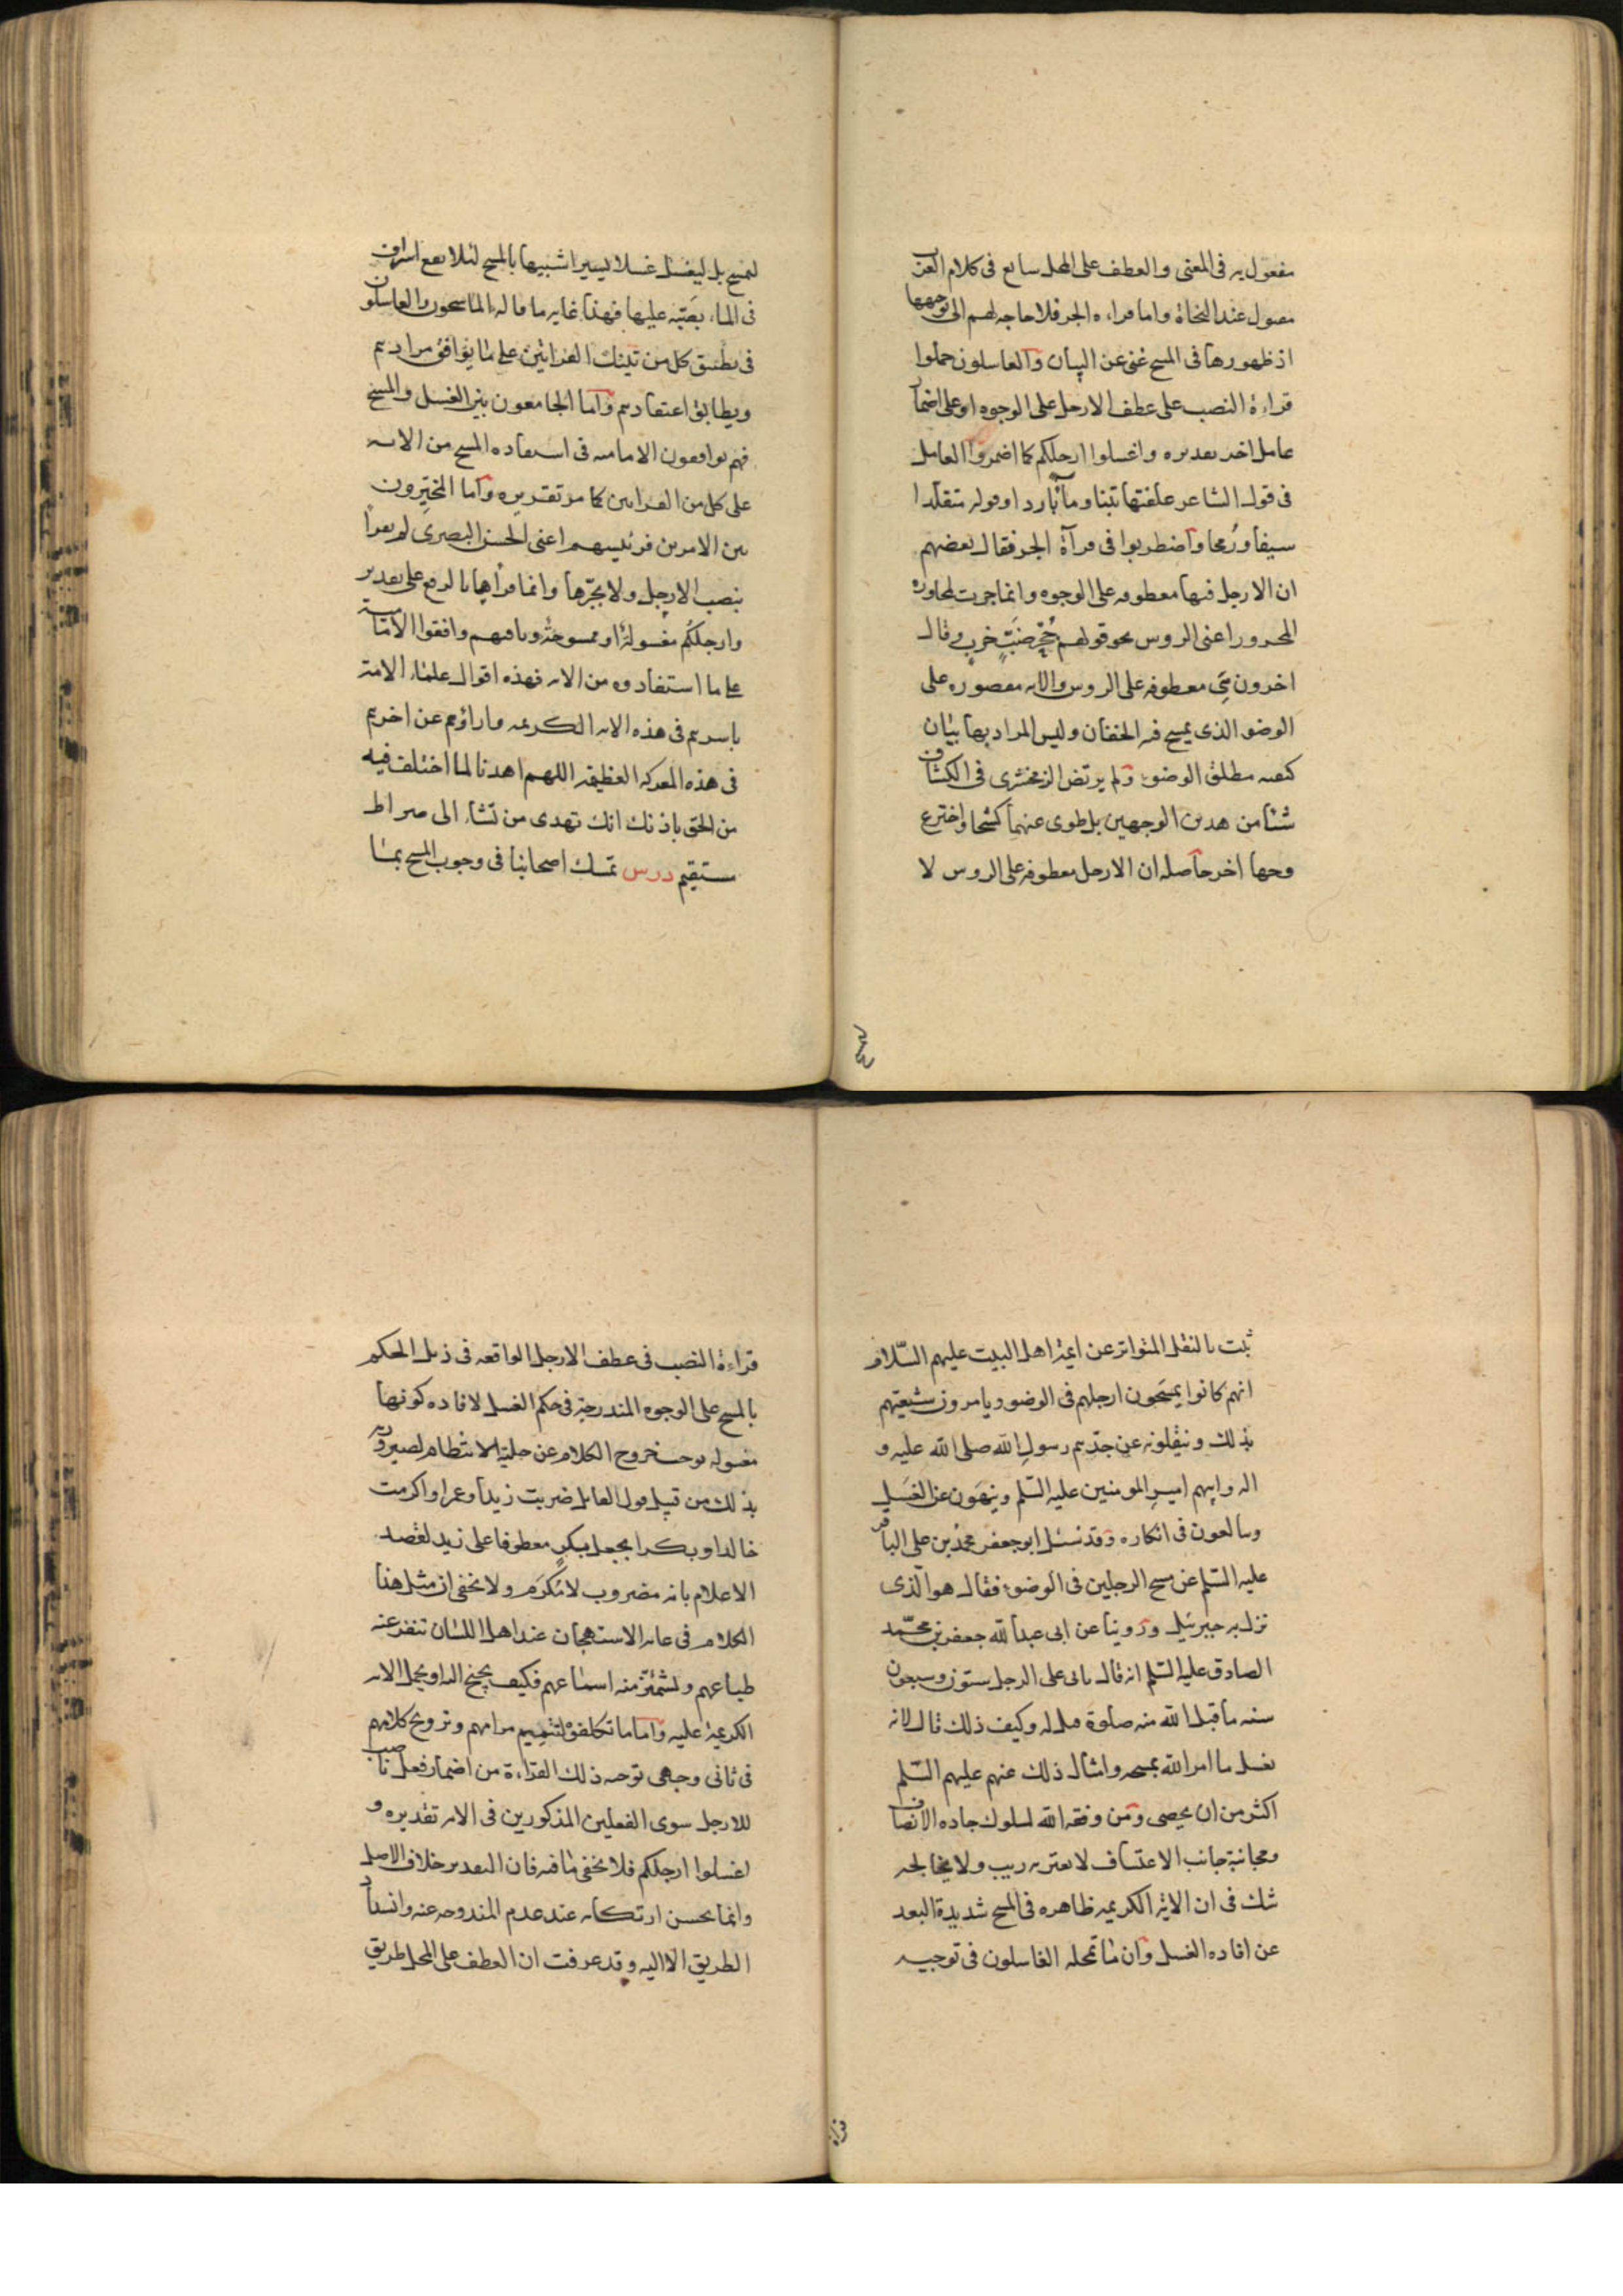 مفعول به فى المعنى والعطف على المحل سايع فى كلام العرب
مقبول عند النحاة واما قراءة الجر فلا حاجه لهم الى توجيهها
اذ ظهورها فى المسح غنى عن البيان والغاسلون حملوا
قراءة النصب على عطف الارجل على الوجوه او على اضمار
عامل اخر تقديره واغسلوا ارجلكم كما اضمروا العامل
فى قول الشاعر علفتها تبنا وماً باردا وقوله متقلدا
سيفا ورُمحا واضطربوا فى قرآة الجر فقال بعضهم
ان الارجل فيها معطوفه على الوجوه وانما جرت لمجاورة
المجرور اعنى الروس نحو قولهم جُحْرُ ضَبٍّ خَرِبٍ وقال
اخرون هى معطوفه على الروس والايه مقصوره على
الوضو الذى يمسح فيه الخفان وليس المراد بها بيان
كيفيه مطلق الوضوء ولم يرتض الزمخشرى فى الكشاف
شيئا من هدين الوجهين بل طوى عنهما كشحا واخترع
وجها اخر حاصله ان الارجل معطوفه على الروس لا
لتمسح بل ليغسل غسلا يسيرا شبيها بالمسح لئلا يقع اسراف
فى الماء بصَبّه عليها فهذا غايه ما قاله الماسحون والغاسلون
فى تطبيق كل من تينك القرائتين على ما يوافق مرادهم
ويطابق اعتقادهم واما الجامعون بين الغسل والمسح
فهم يوافقون الاماميه فى استفاده المسح من الايه
على كل من القرائين كما مر تقريره واما المخيّرون
بين الامرين فرئيسهم اعنى الحسن البصرى لم يقرأ
بنصب الارجل ولا بجرّها وانما قرأها بالرفع على تقدير
وارجلكُم مغسولةٌ او ممسوحةٌ وباقيهم وافقوا الاماميه
على ما استفادوه من الايه فهذه اقوال علماء الامة
باسرهم فى هذه الايه الكريمه واراؤهم عن اخرهم
فى هذه المعركه العظيمه اللهم اهدنا لما اختلف فيه
من الحق باذنك انك تهدى من تشاء الى صراط
مستقيم درس تمسك اصحابنا فى وجوب المسح بما
ثبت بالنقل المتواتر عن ايمة اهل البيت عليهم السّلام
انهم كانوا يمسَحون ارجلهم فى الوضوء ويامرون شيعتهم
بذلك وينقلونه عن جدّهم رسولِ الله صلى الله عليه و
اله وابيهم اميرِ المومنين عليه السّلم وينهَون عن الغَسل
ويبالغون فى انكاره وقد سئل ابو جعفر محمّد بن على الباقر
عليه السّلم عن مسح الرجلين فى الوضوء فقال هو الّذى
نزل به جبرئيل وروينا عن ابى عبد الله جعفر بن محمّد
الصادق عليه السّلم انه قال ياتى على الرجل ستون وسبعون
سنه ما قبل الله منه صلوة قيل له وكيف ذلك قال لانه
يغسل ما امر الله بمسحه وامثال ذلك عنهم عليهم السّلم
اكثر من ان يحصى ومن وفقه الله لسلوك جاده الانصاف
ومجانبة جانب الاعتساف لا يعتريه ريب ولا يخالجه
شك فى ان الاية الكريمه ظاهره فى المسح شديدة البعد
عن افاده الغسل وان ما تمحله الغاسلون فى توجيه
قراءة النصب فى عطف الارجل الواقعه فى ذيل الحكم
بالمسح على الوجوه المندرجة فى حكم الغسل لافاده كونها
مغسوله يوجب خروج الكلام عن حلية الانتظام لصيرورته
بذلك من قبيل قول القايل ضربت زيدا وعمرا واكرمت
خالدا وبكرا بجعل بكرٍ معطوفا على زيد لقصد
الاعلام بانه مضروب لا مُكرَم ولا يخفى ان مثل هذا
الكلام فى غايه الاستهجان عند اهل اللسان تنفر عنه
طباعهم وتشمئز منه اسماعهم فكيف يجنح اليه او يحمل الايه
الكريمة عليه واما ما تكلفوه لتتميم مرامهم وترويج كلامهم
فى ثانى وجهى توجيه ذلك القراءة من اضمار فعل ناصب
للارجل سوى الفعلين المذكورين فى الايه تقديره و
اغسلوا ارجلكم فلا يخفى ما فيه فان التقدير خلاف الاصل
وانما يحسن ارتكابه عند عدم المندوحه عنه وانسداد
الطريق الا اليه وقد عرفت ان العطف على المحل طريق